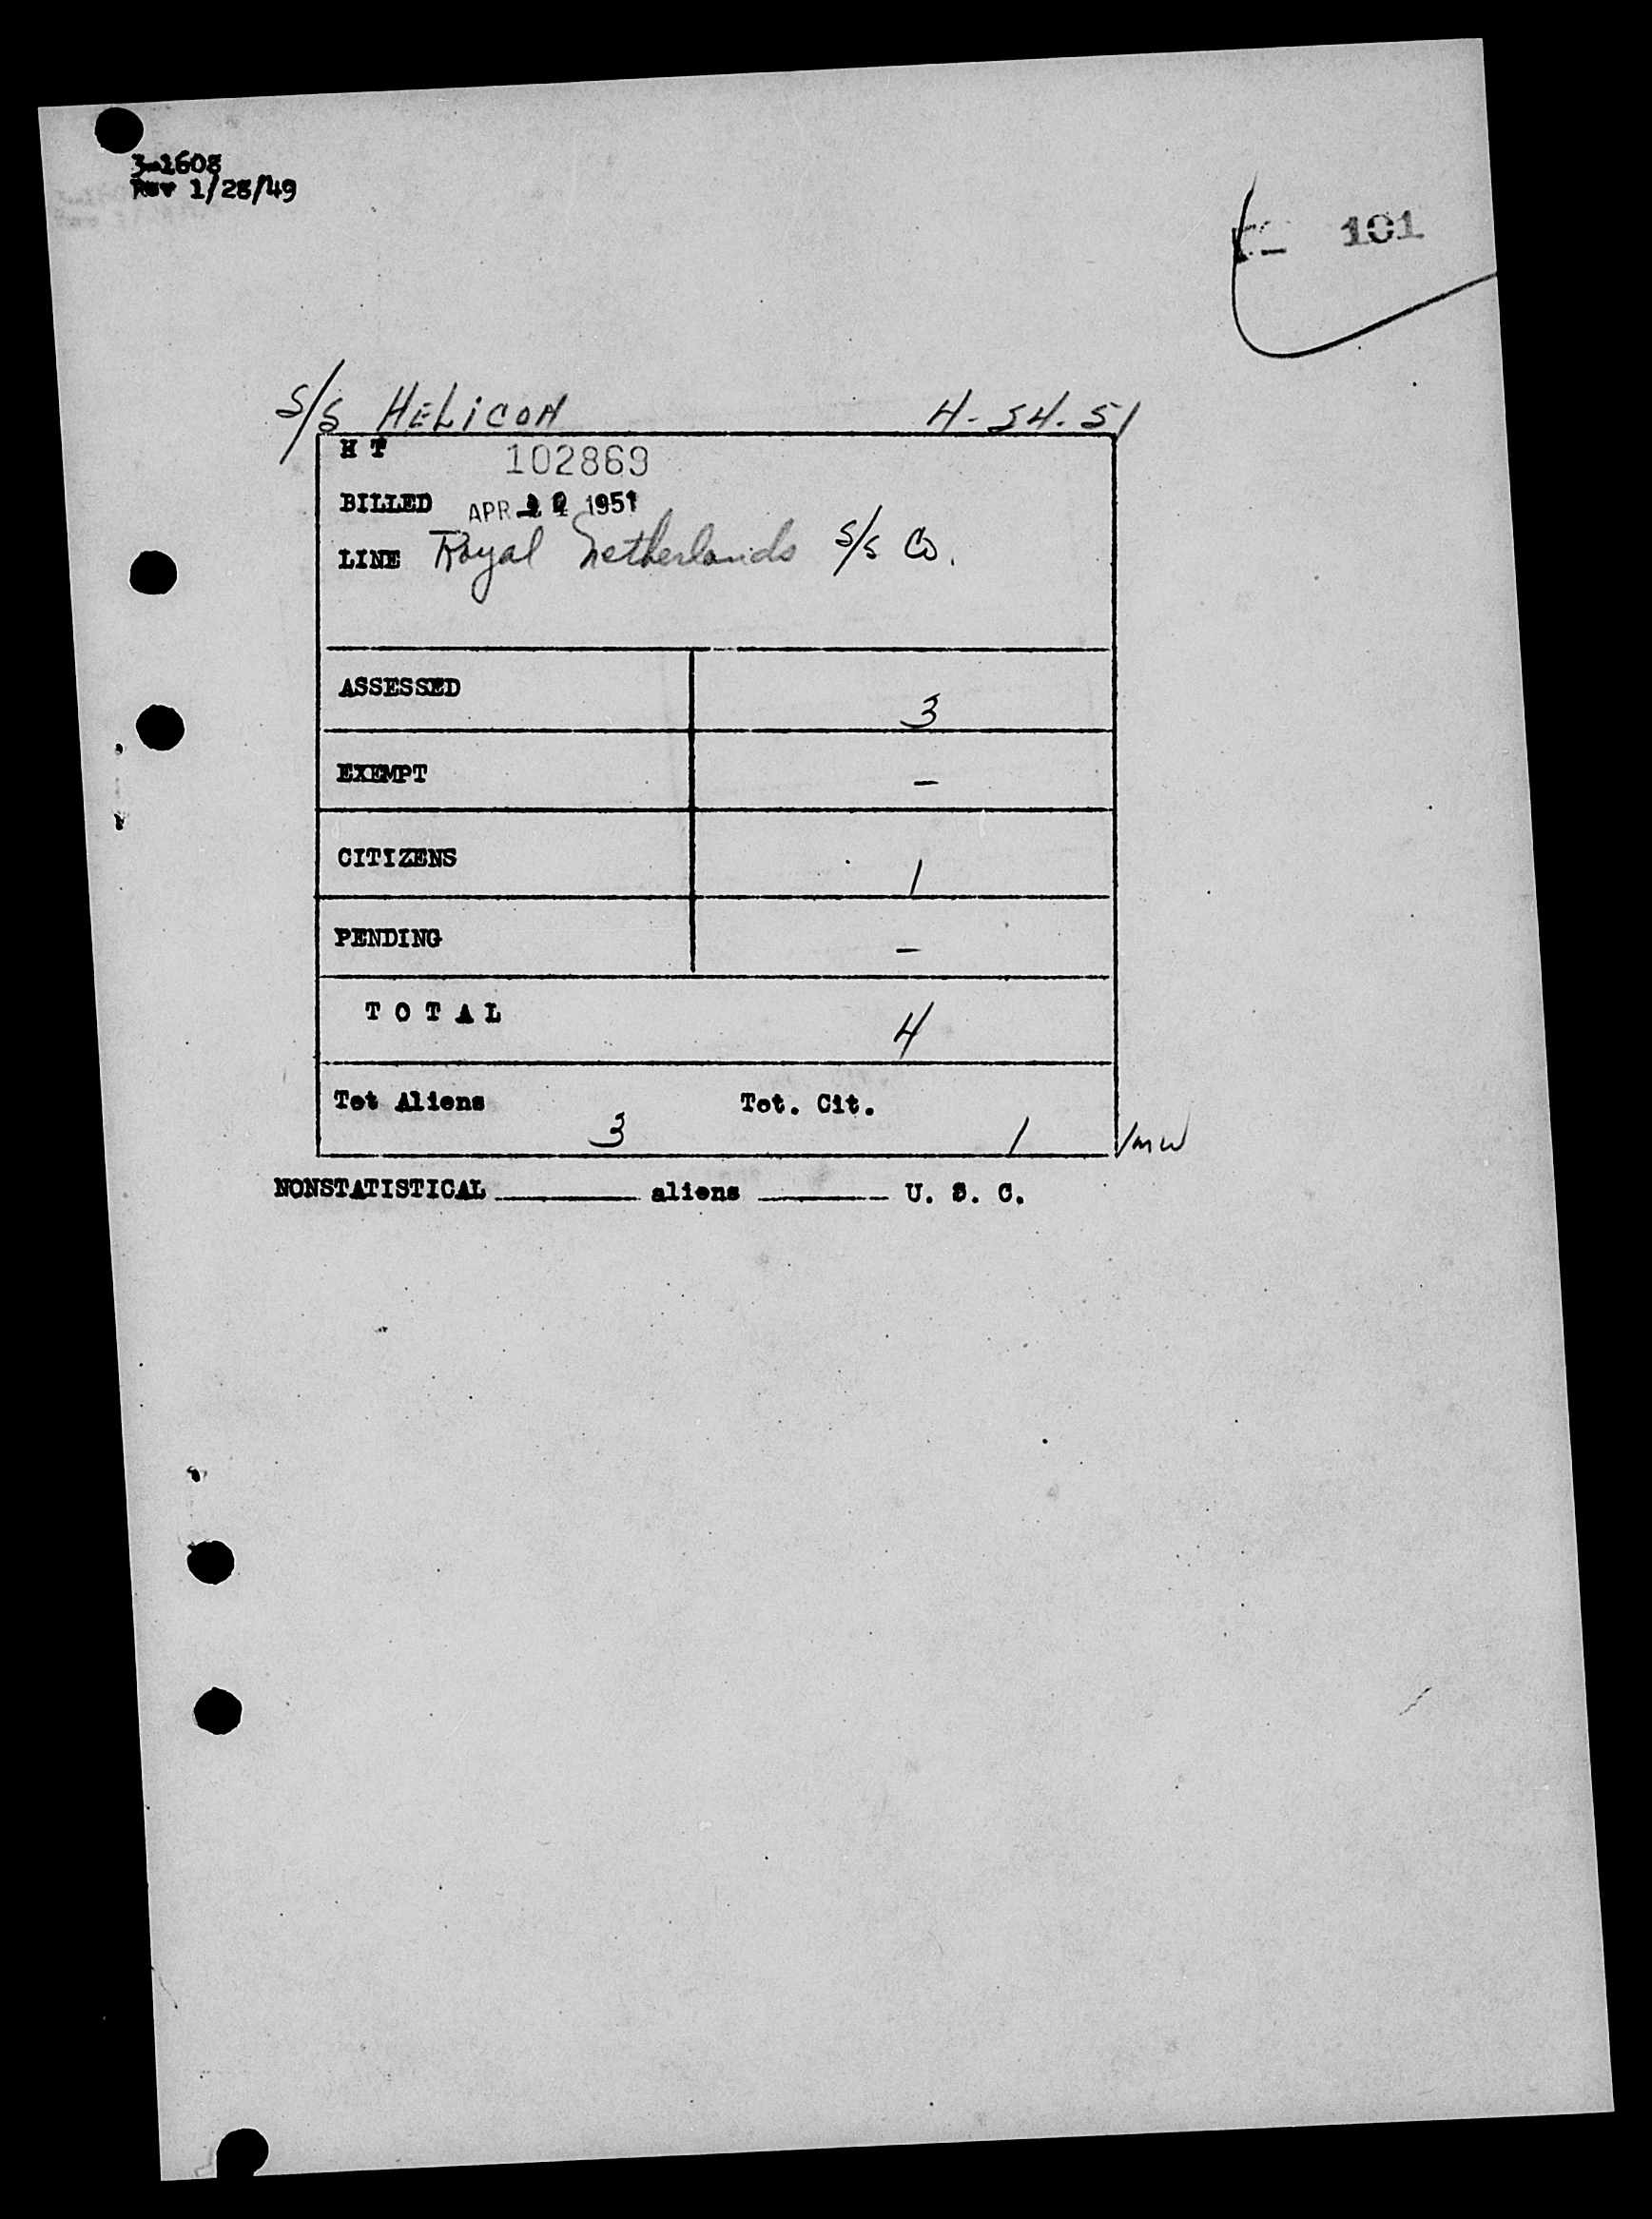 3-1608
Rev 1/28/49
101
S/S HELICON 4-24-51
H T 102869
BILLED APR 1951
LINE Royal Netherlands S/S Co.
ASSESSED 3
EXEMPT –
CITIZENS 1
PENDING –
TOTAL 4
Tot Aliens 3 Tot. Cit. 1 /mw
NONSTATISTICAL ________ aliens ________ U. S. C.